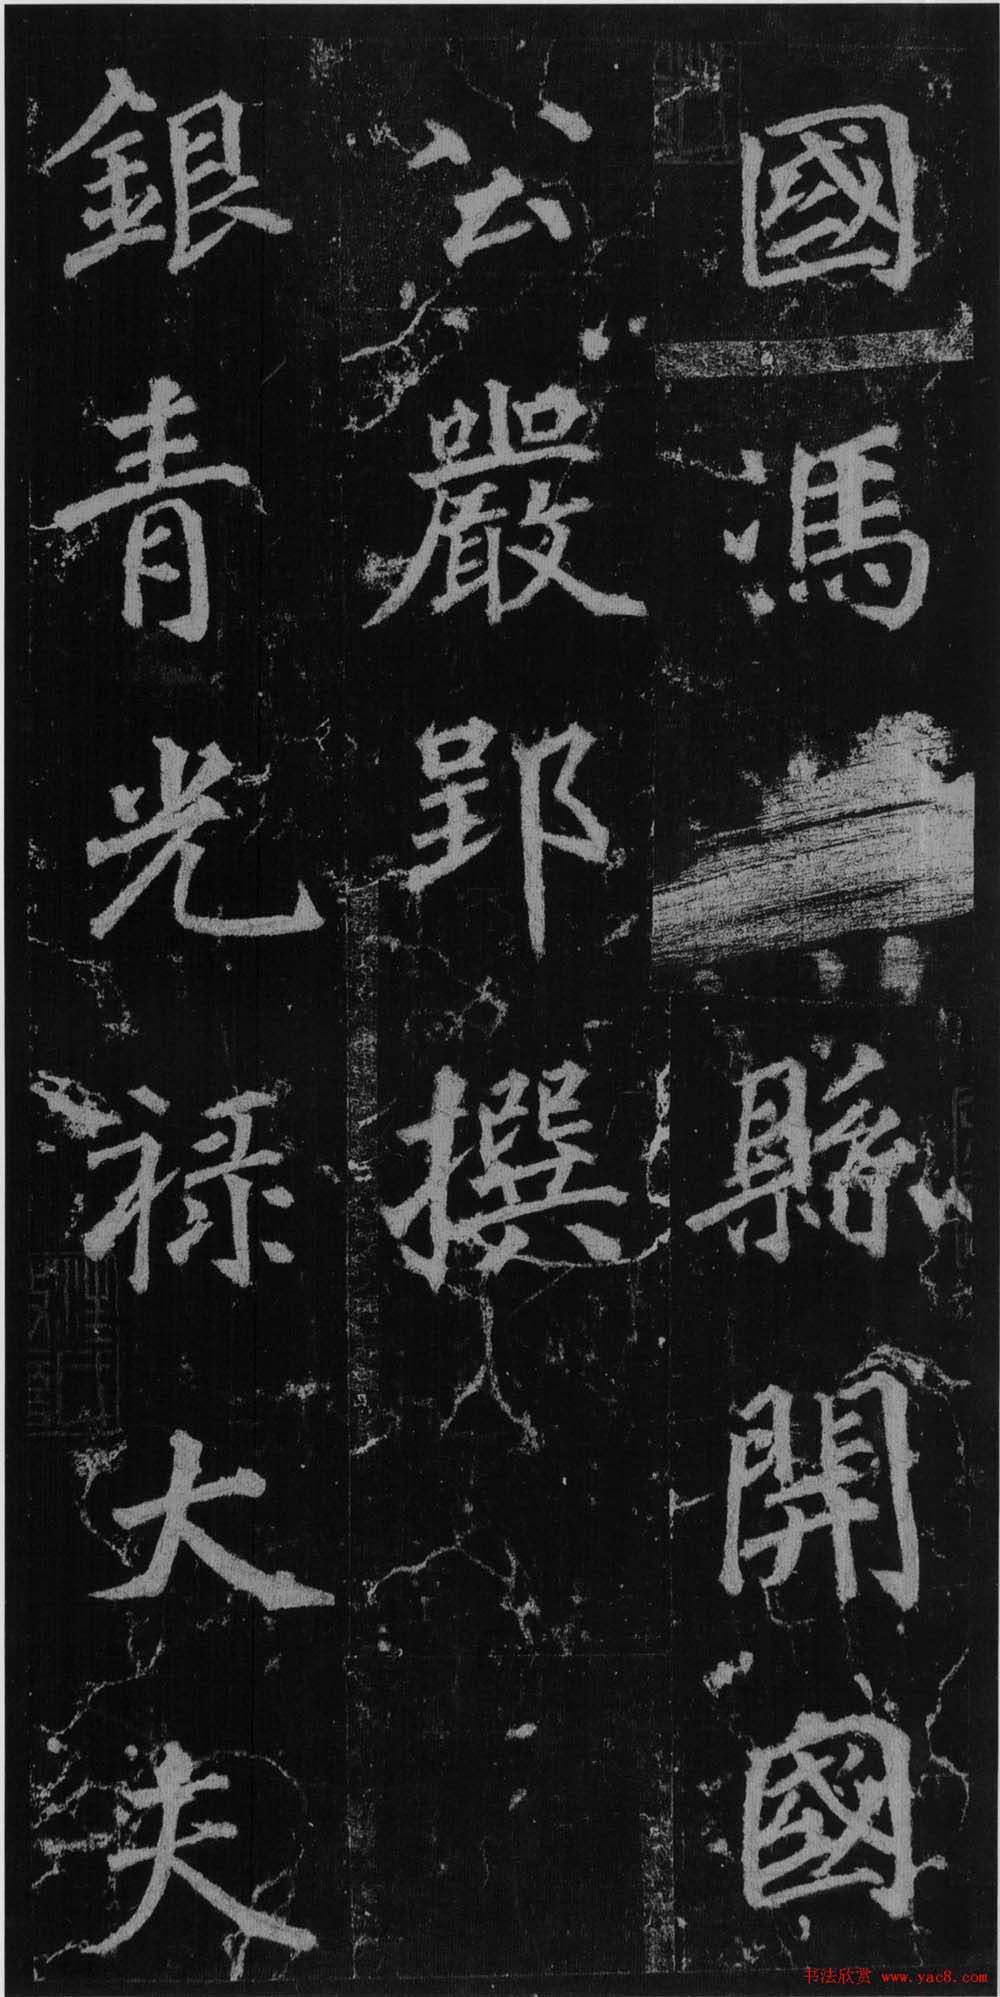 國馮縣開國
公嚴郢撰
銀青光祿大夫
书法欣赏 www.yac8.com